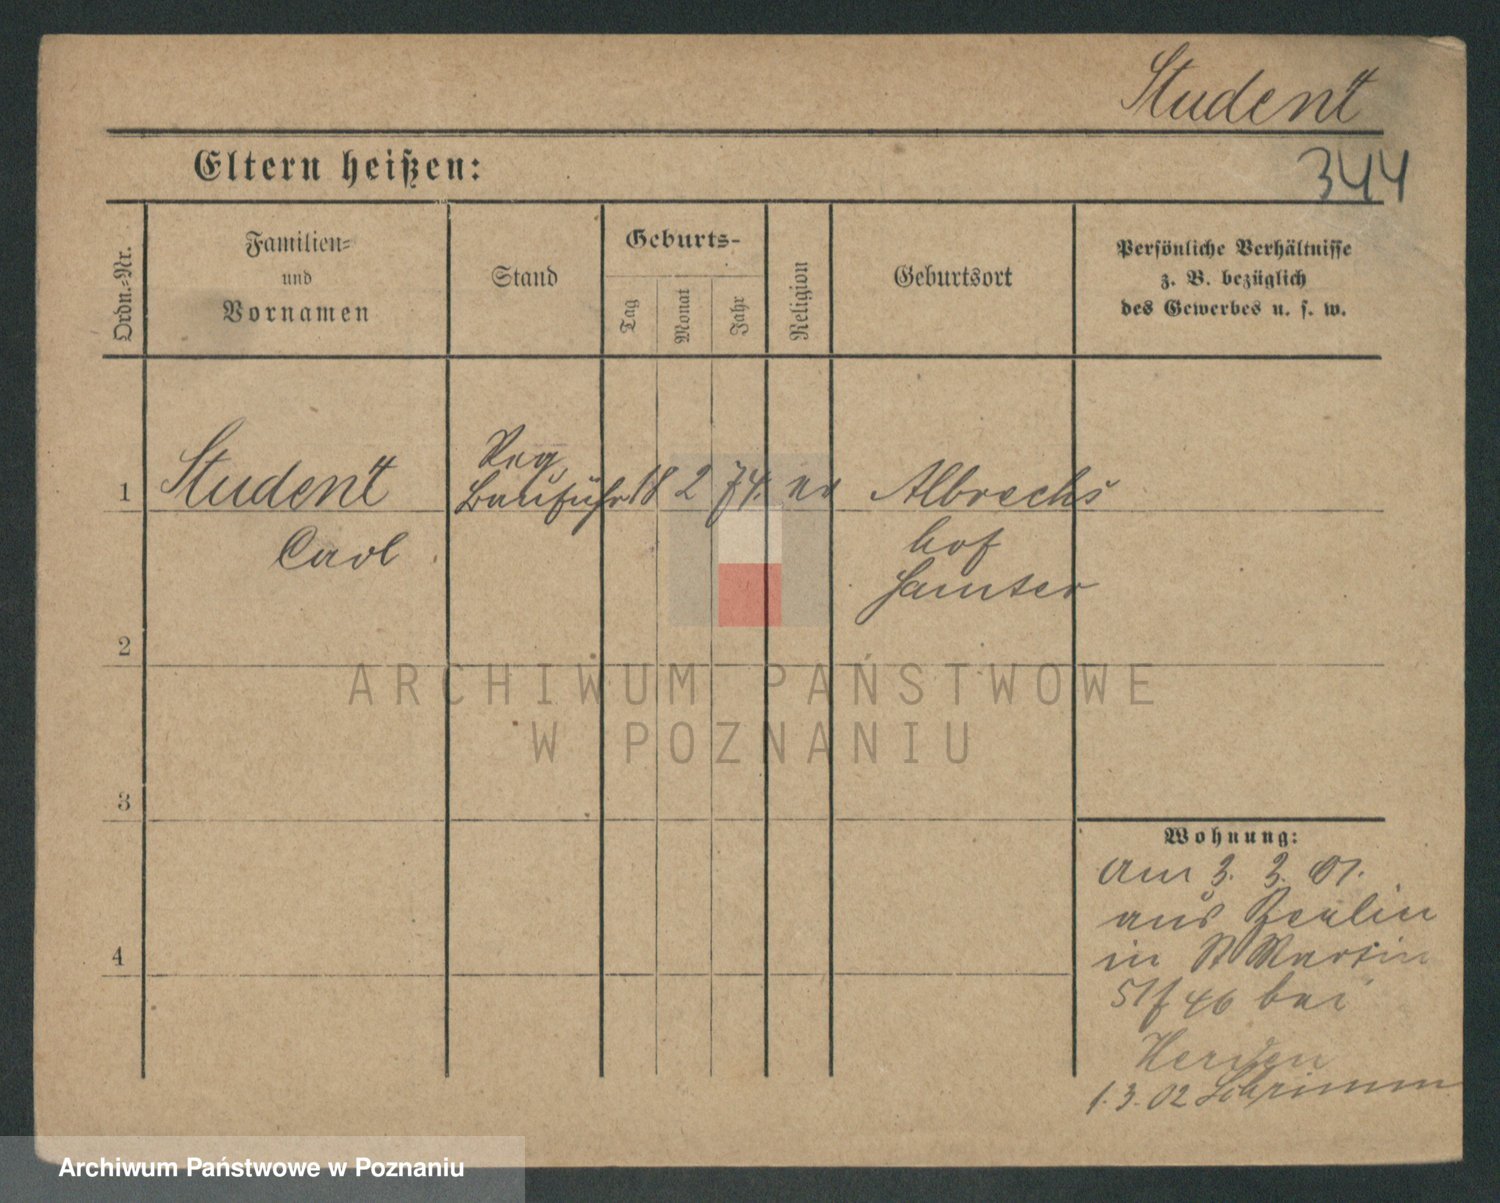 Student
344
Eltern heißen:
Ordn.-Nr.
Familien-
und
Vornamen
Stand
Geburts-
Tag
Monat
Jahr
Religion
Geburtsort
Persönliche Verhältnisse
z. B. bezüglich
des Gewerbes u. s. w.
Reg.
1 Student Bauführ 18 2 74. ev Albrechs
Carl hof
Samter
2
3
4
Wohnung:
am 3. 3. 01.
aus Berlin
in St Martin
51/46 bei
1.3.02 Schrimm
ARCHIWUM PAŃSTWOWE
W POZNANIU
Archiwum Państwowe w Poznaniu